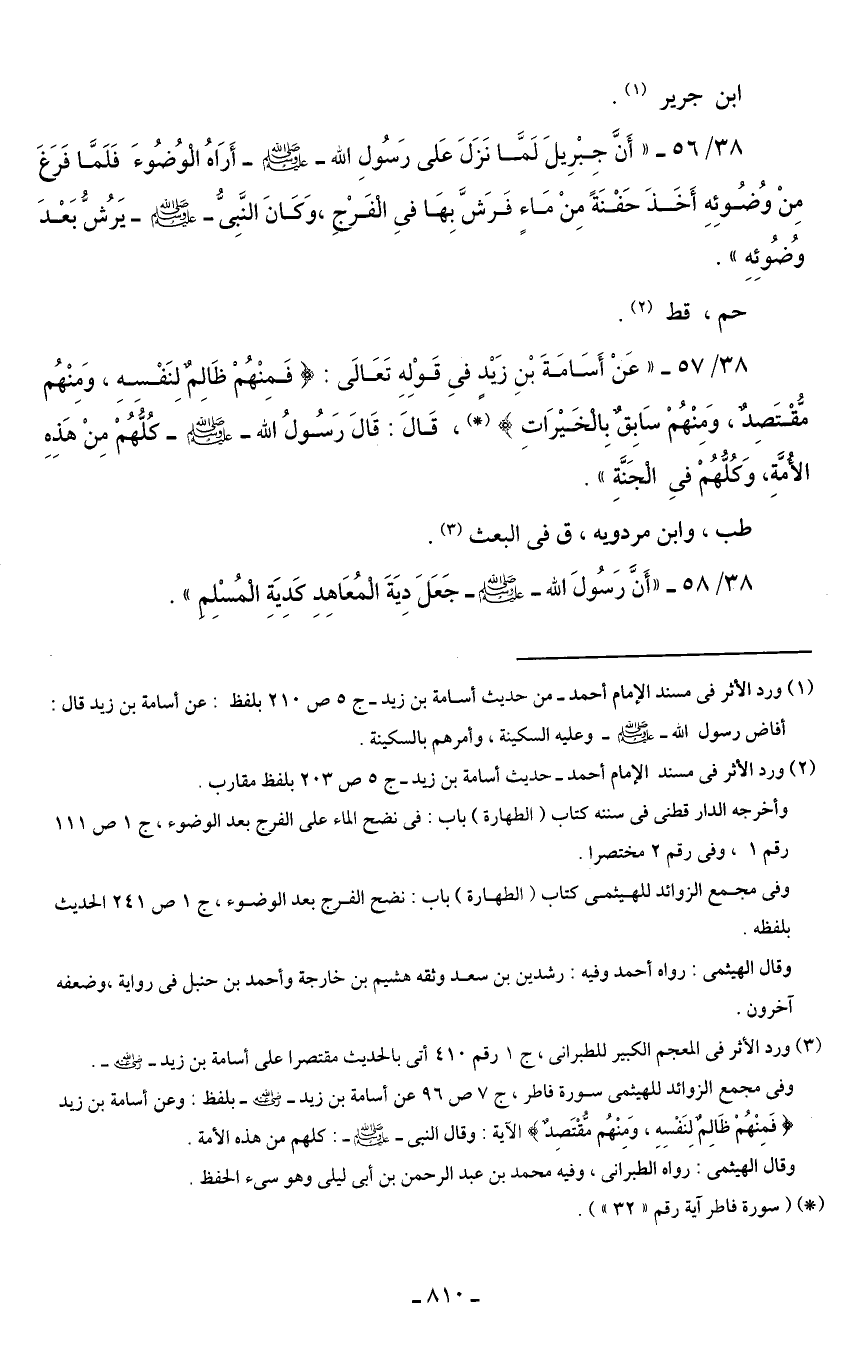 ابن جرير (١) .
٥٦/٣٨ ـ « أَنَّ جِبْرِيلَ لَمَّا نَزَلَ عَلَى رَسُولِ الله ـ ﷺ ـ أَرَاهُ الْوُضُوءَ فَلَمَّا فَرَغَ
مِنْ وُضُوئِهِ أَخَذَ حَفْنَةً مِنْ مَاءٍ فَرَشَّ بِهَا فِي الْفَرْجِ ، وَكَانَ النَّبِيُّ ـ ﷺ ـ يَرُشُّ بَعْدَ
وُضُوئِهِ » .
حم ، قط (٢) .
٥٧/٣٨ ـ « عَنْ أُسَامَةَ بْنِ زَيْدٍ فِي قَوْلِهِ تَعَالَى : ﴿ فَمِنْهُمْ ظَالِمٌ لِنَفْسِهِ ، وَمِنْهُم
مُّقْتَصِدٌ ، وَمِنْهُمْ سَابِقٌ بِالْخَيْرَاتِ ﴾ (*) ، قَالَ : قَالَ رَسُولُ الله ـ ﷺ ـ كُلُّهُمْ مِنْ هَذِهِ
الأُمَّةِ، وَكُلُّهُمْ فِي الْجَنَّةِ » .
طب ، وابن مردويه ، ق فى البعث (٣) .
٥٨/٣٨ ـ «أَنَّ رَسُولَ الله ـ ﷺ ـ جَعَلَ دِيَةَ الْمُعَاهِدِ كَدِيَةِ الْمُسْلِمِ » .
(١) ورد الأثر فى مسند الإمام أحمد ـ من حديث أسامة بن زيد ـ ج ٥ ص ٢١٠ بلفظ : عن أسامة بن زيد قال :
أفاض رسول الله ـ ﷺ ـ وعليه السكينة ، وأمرهم بالسكينة .
(٢) ورد الأثر فى مسند الإمام أحمد ـ حديث أسامة بن زيد ـ ج ٥ ص ٢٠٣ بلفظ مقارب .
وأخرجه الدار قطنى فى سننه كتاب ( الطهارة ) باب : فى نضح الماء على الفرج بعد الوضوء ، ج ١ ص ١١١
رقم ١ ، وفى رقم ٢ مختصرا .
وفى مجمع الزوائد للهيثمى كتاب ( الطهارة ) باب : نضح الفرج بعد الوضوء ، ج ١ ص ٢٤١ الحديث
بلفظه .
وقال الهيثمى : رواه أحمد وفيه : رشدين بن سعد وثقه هشيم بن خارجة وأحمد بن حنبل فى رواية ،وضعفه
آخرون .
(٣) ورد الأثر فى المعجم الكبير للطبرانى ، ج ١ رقم ٤١٠ أتى بالحديث مقتصرا على أسامة بن زيد ـ رضي الله عنه ـ .
وفى مجمع الزوائد للهيثمى سورة فاطر ، ج ٧ ص ٩٦ عن أسامة بن زيد ـ رضي الله عنه ـ بلفظ : وعن أسامة بن زيد
﴿ فَمِنْهُمْ ظَالِمٌ لِنَفْسِهِ ، وَمِنْهُم مُّقْتَصِدٌ ﴾ الآية : وقال النبى ـ ﷺ ـ : كلهم من هذه الأمة .
وقال الهيثمى : رواه الطبرانى ، وفيه محمد بن عبد الرحمن بن أبى ليلى وهو سىء الحفظ .
(*) ( سورة فاطر آية رقم « ٣٢ » ) .
ـ ٨١٠ ـ